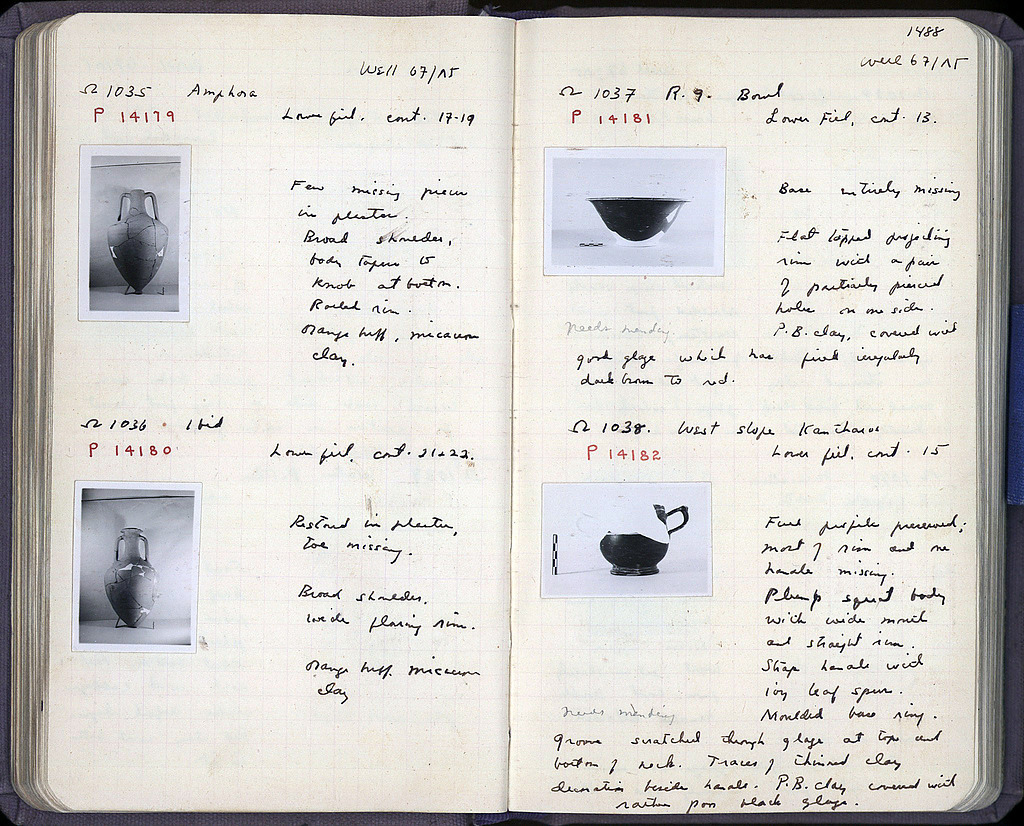 Well 67/ΠΓ
Ω 1035 Amphora
P 14179 Lower fill. cont. 17-19
Few missing pieces
in plaster.
Broad shoulder,
body tapers to
knob at bottom.
Rolled rim.
Orange buff, micaceous
clay.
Ω 1036 Ibid
P 14180 Lower fill, cont. 21+22.
Restored in plaster,
toe missing.
Broad shoulder,
wide flaring rim.
Orange buff micaceous
clay
1488
Well 67/ΠΓ
Ω 1037 R. g. Bowl
P 14181 Lower Fill, cont. 13.
Base entirely missing
Flat topped projecting
rim with a pair
of partially pierced
holes on one side.
needs mending.
P.B. clay, covered with
good glaze which has fired irregularly
dark brown to red.
Ω 1038. West slope Kantharos
P 14182 Lower fill, cont. 15
Full profile preserved;
most of rim and one
handle missing.
Plump squat body
with wide mouth
and straight rim.
Strap handle with
ivy leaf spur.
needs mending
Moulded base ring.
Groove scratched through glaze at top and
bottom of neck. Traces of thinned clay
decoration beside handle. P.B. clay covered with
rather poor black glaze.